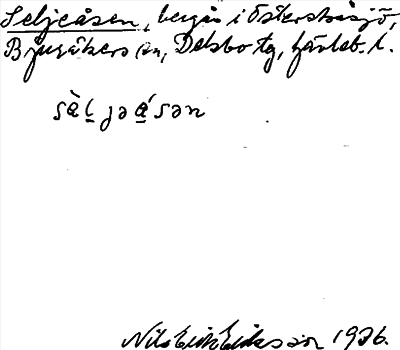 Seljeåsen, bergås i Österstråsjö,
Bjuråkers sn, Delsbo tg, Gävleb. l.
sàl̠jəa̠´sən
Nils Erik Eriksson 1936.